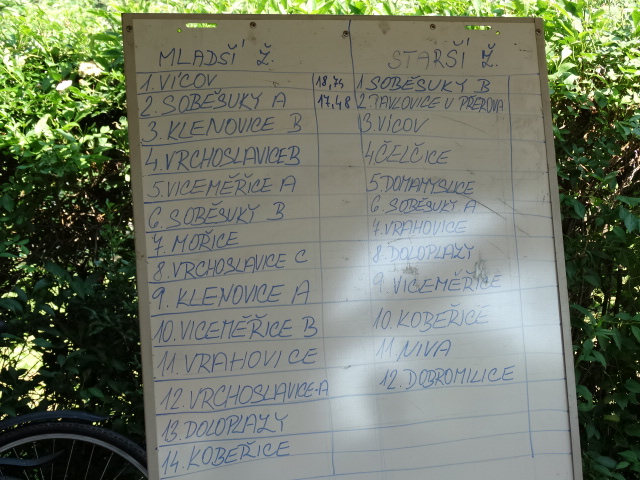 MLADŠÍ Ž.
1. VÍCOV 18,75
2. SOBĚSUKY A 17,48
3. KLENOVICE B
4. VRCHOSLAVICE B
5. VICEMĚŘICE A
6. SOBĚSUKY B
7. MOŘICE
8. VRCHOSLAVICE C
9. KLENOVICE A
10. VICEMĚŘICE B
11. VRAHOVICE
12. VRCHOSLAVICE-A
13. DOLOPLAZY
14. KOBEŘICE
STARŠÍ Ž.
1 SOBĚSUKY B
2. TAVLOVICE U PŘEROVA
3. VÍCOV
4 ČELČICE
5. DOMAMYSLICE
6. SOBĚSUKY A
7. VRAHOVICE
8. DOLOPLAZY
9. VICEMĚŘICE
10. KOBEŘICE
11. NIVA
12. DOBROMILICE